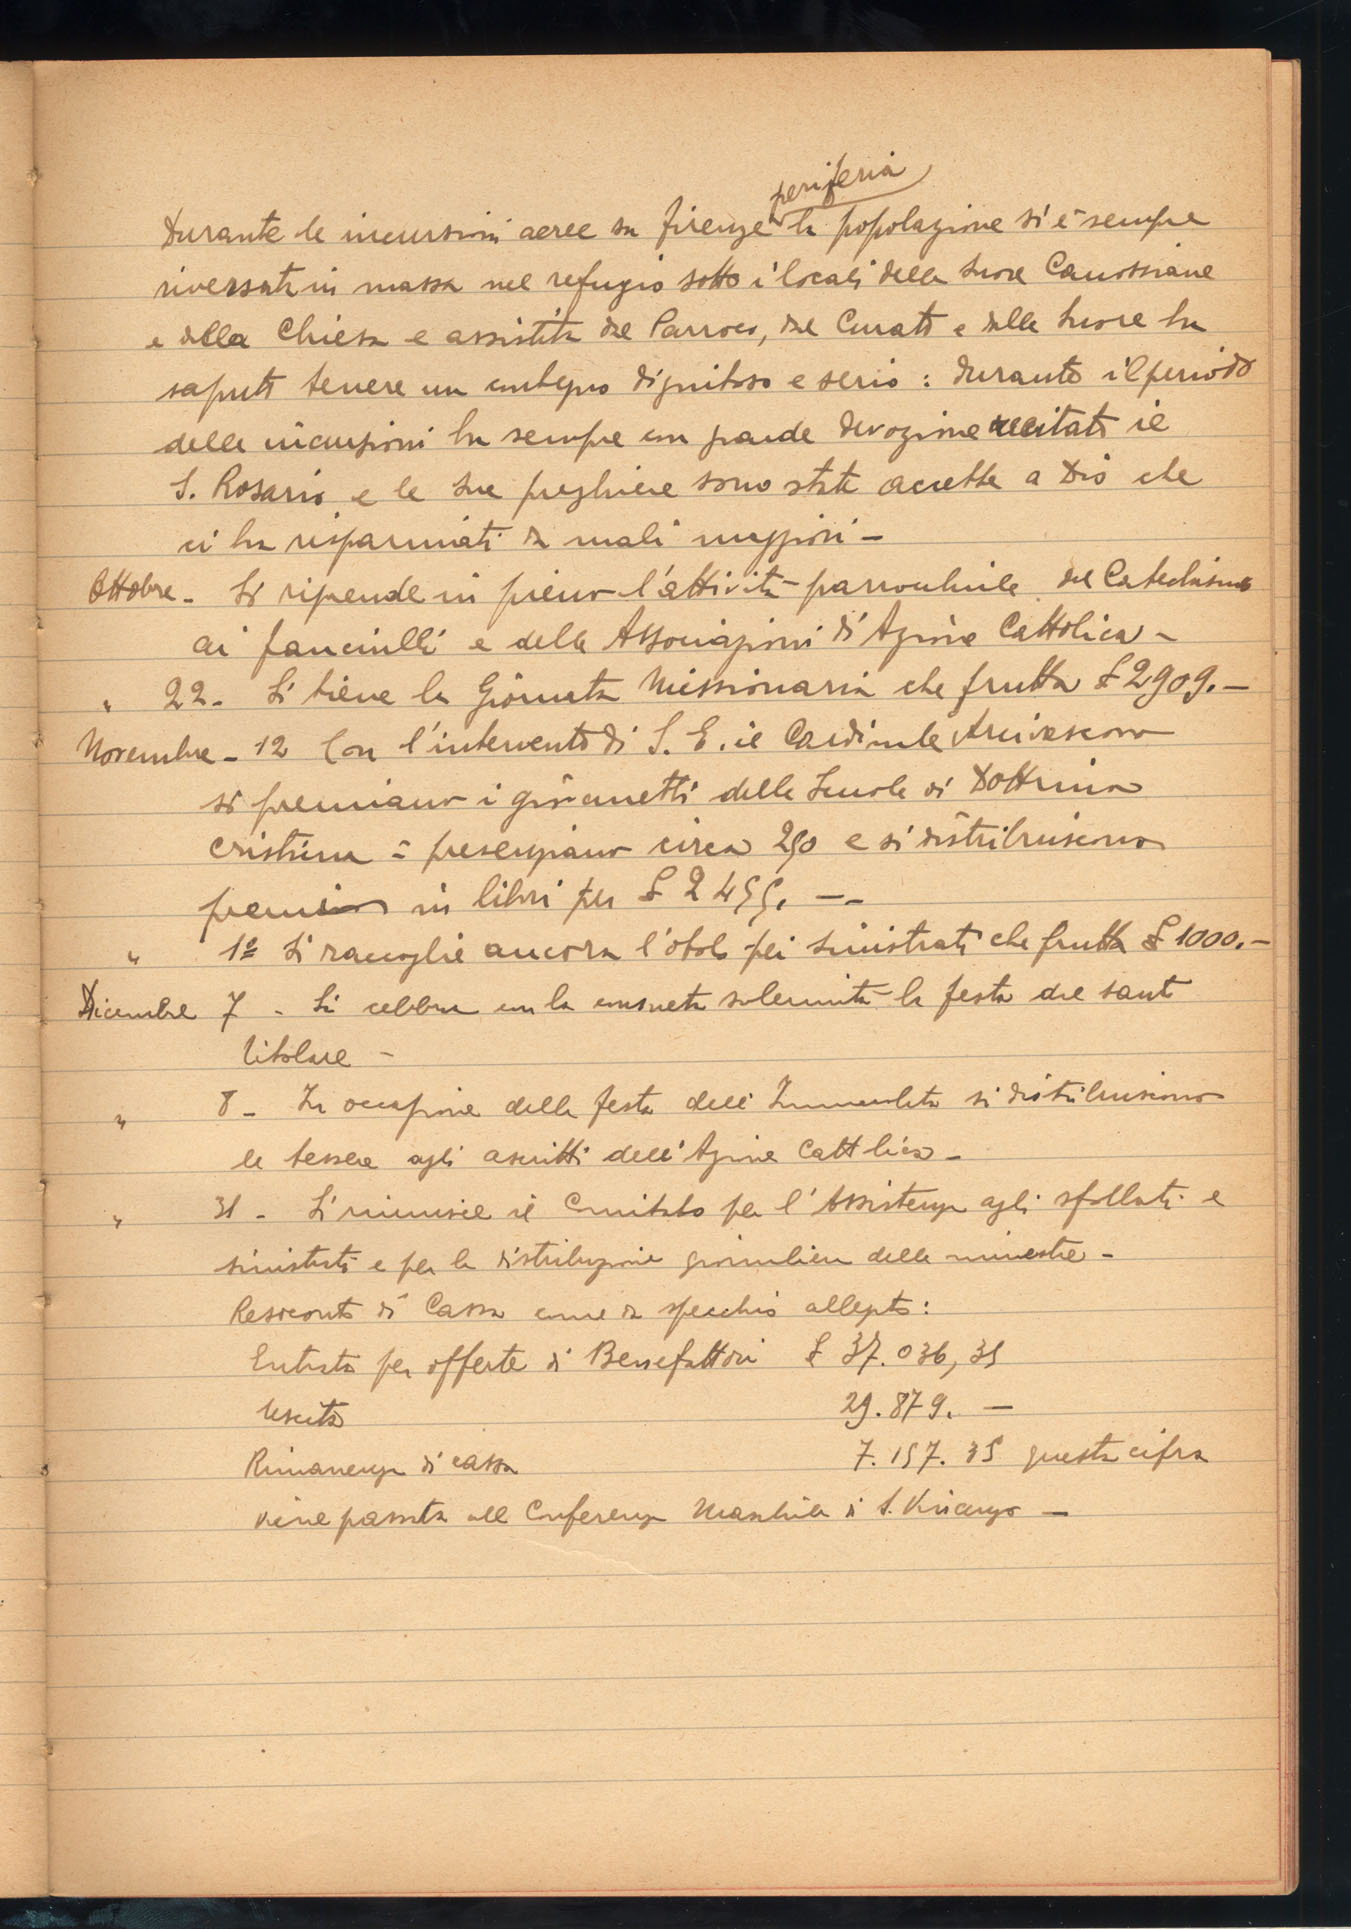 periferia
Durante le incursioni aeree su Firenze la popolazione si è sempre
riversata in massa nel refugio sotto i locali delle Suore Canossiane
e della Chiesa e assistita dal Parroco, dal Curato e dalle Suore ha
saputo tenere un contegno dignitoso e serio : durante il periodo
delle incursioni ha sempre con grande devozione recitato il
S. Rosario e le sue preghiere sono state accette a Dio che
ci ha risparmiati da mali maggiori –
Ottobre - Si riprende in pieno l'attività parrocchiale del Catechismo
ai fanciulli e delle Associazioni di Azione Cattolica –
" 22 - Si tiene la Giornata Missionaria che frutta £ 2909. –
Novembre - 12 Con l'intervento di S. E. il Cardinale Arcivescovo
si premiano i giovanetti della Scuola di Dottrina
Cristiana = presenziano circa 250 e si distribuiscono
premi in libri per £ 2455. –
" 1º Si raccoglie ancora l'obolo pei sinistrati che frutta £ 1000. –
Dicembre 7 - Si celebra con la consueta solennità la festa del santo
titolare –
" 8 - In occasione della festa dell'Immacolata si distribuiscono
le tessere agli ascritti dell'Azione Cattolica –
" 31 - Si riunisce il Comitato per l'Assistenza agli sfollati e
sinistrati e per la distribuzione giornaliera delle minestre –
Resoconto di Cassa come da specchio allegato :
Entrata per offerte di Benefattori £ 37.036,35
Uscita 29.879. –
Rimanenza di cassa 7.157.35 questa cifra
viene passata alla Conferenza Maschile di S. Vincenzo –